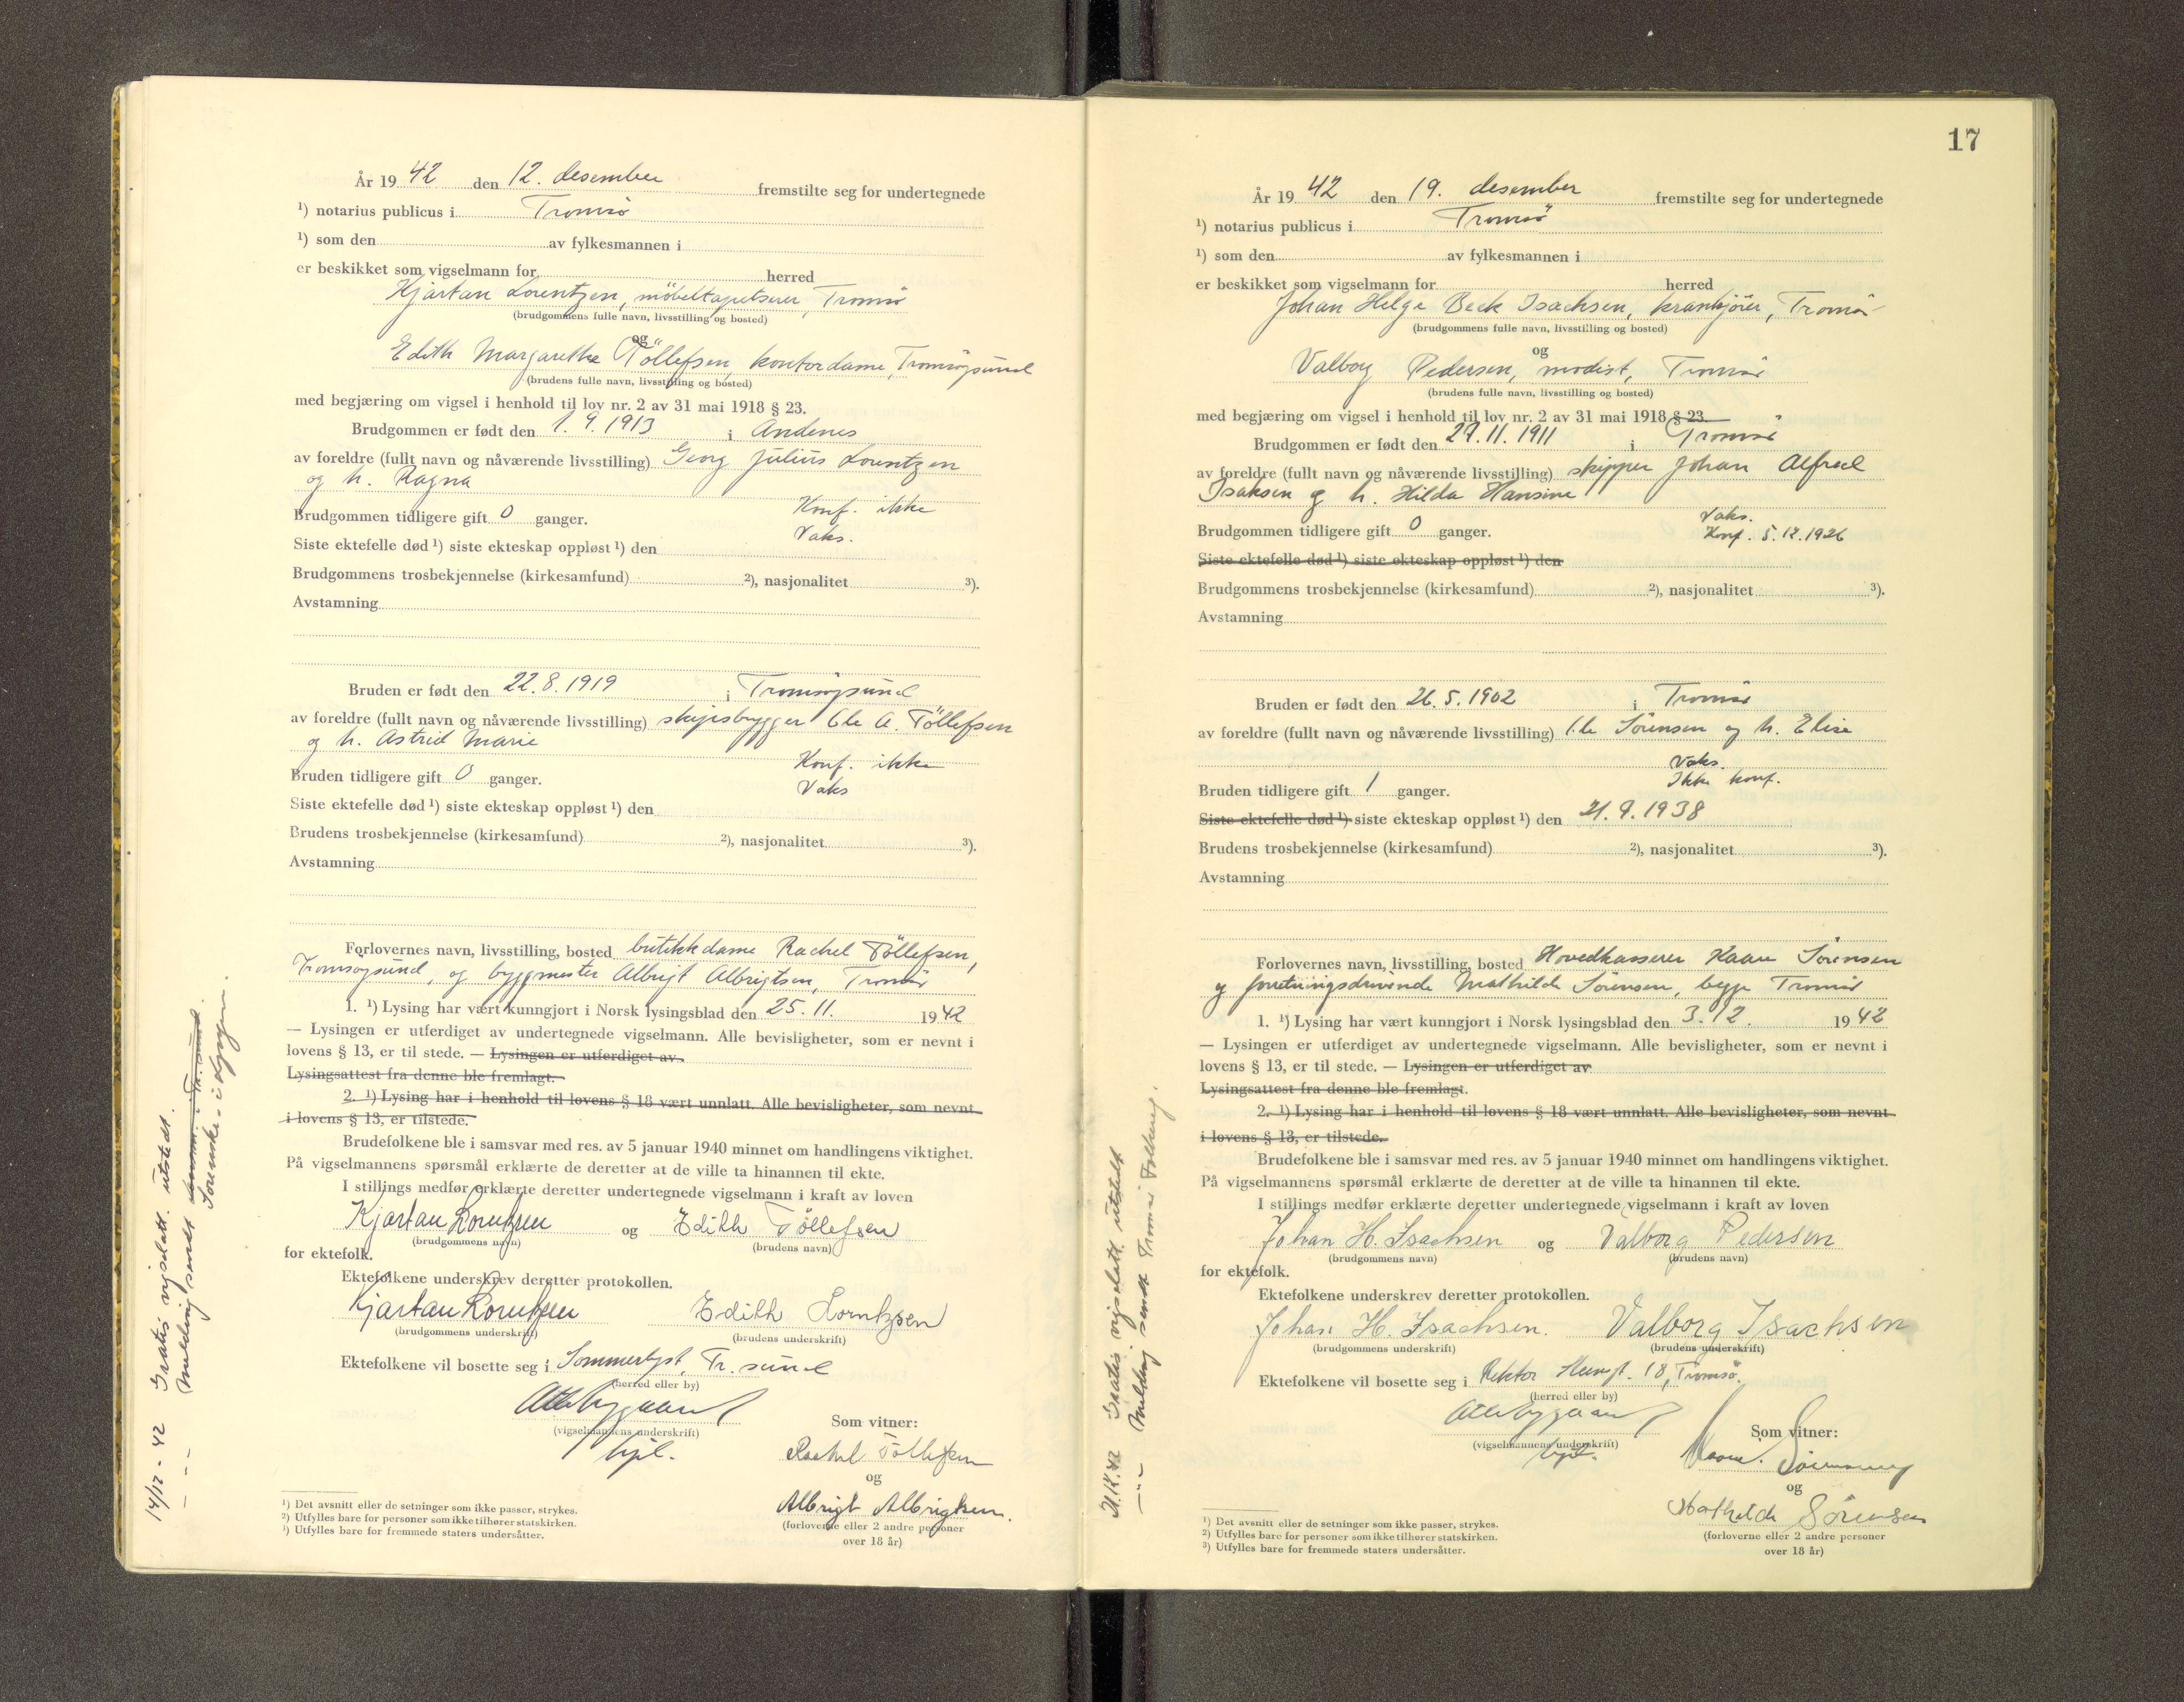 År 19 42 den 12. desember fremstilte seg for undertegnede
¹) notarius publicus i Tromsö
¹) som den av fylkesmannen i
er beskikket som vigselmann for herred
Kjartan Lorentzen, möbeltapetserer, Tromsö
(brudgommens fulle navn, livsstilling og bosted)
og
Edith Margarethe Töllefsen, kontordame, Tromsöysund
(brudens fulle navn, livsstilling og bosted)
med begjæring om vigsel i henhold til lov nr. 2 av 31 mai 1918 § 23.
Brudgommen er født den 1. 9. 1913 i Andenes
av foreldre (fullt navn og nåværende livsstilling) Georg Julius Lorentzen
og h. Ragna
Konf. ikke
Brudgommen tidligere gift 0 ganger.
Vaks.
Siste ektefelle død ¹) siste ekteskap oppløst ¹) den
Brudgommens trosbekjennelse (kirkesamfund) ²), nasjonalitet ³).
Avstamning
Bruden er født den 22. 8. 1919 i Tromsöysund
av foreldre (fullt navn og nåværende livsstilling) skipsbygger Ole A. Töllefsen
og h. Astrid Marie
Konf. ikke
Bruden tidligere gift 0 ganger.
Vaks
Siste ektefelle død ¹) siste ekteskap oppløst ¹) den
Brudens trosbekjennelse (kirkesamfund) ²), nasjonalitet ³).
Avstamning
Forlovernes navn, livsstilling, bosted butikkdame Rachel Töllefsen,
Tromsöysund, og byggmester Albrigt Albrigtsen, Tromsö
1. ¹) Lysing har vært kunngjort i Norsk lysingsblad den 25. 11. 1942
— Lysingen er utferdiget av undertegnede vigselmann. Alle bevisligheter, som er nevnt i
lovens § 13, er til stede. — Lysingen er utferdiget av
Lysingsattest fra denne ble fremlagt.
2. ¹) Lysing har i henhold til lovens § 18 vært unnlatt. Alle bevisligheter, som nevnt
i lovens § 13, er tilstede.
Brudefolkene ble i samsvar med res. av 5 januar 1940 minnet om handlingens viktighet.
På vigselmannens spørsmål erklærte de deretter at de ville ta hinannen til ekte.
I stillings medfør erklærte deretter undertegnede vigselmann i kraft av loven
Kjartan Lorentzen og Edith Töllefsen
(brudgommens navn) (brudens navn)
for ektefolk.
Ektefolkene underskrev deretter protokollen.
Kjartan Lorentzen Edith Lorntzsen
(brudgommens underskrift) (brudens underskrift)
Ektefolkene vil bosette seg i Sommerlyst, Tr. sund
(herred eller by)
(vigselmannens underskrift)
Som vitner:
Rachel Töllefsen
og
Albrigt Albrigtsen.
(forloverne eller 2 andre personer
over 18 år)
¹) Det avsnitt eller de setninger som ikke passer, strykes.
²) Utfylles bare for personer som ikke tilhører statskirken.
³) Utfylles bare for fremmede staters undersåtter.
14/12 - 42 Gratis vigselatt. utstedt.
Melding sendt
17
År 19 42 den 19. desember fremstilte seg for undertegnede
¹) notarius publicus i Tromsö
¹) som den av fylkesmannen i
er beskikket som vigselmann for herred
Johan Helge Beck Isachsen, krankjörer, Tromsö
(brudgommens fulle navn, livsstilling og bosted)
og
Valborg Pedersen, modist, Tromsö
(brudens fulle navn, livsstilling og bosted)
med begjæring om vigsel i henhold til lov nr. 2 av 31 mai 1918 § 23.
Brudgommen er født den 27. 11. 1911 i Tromsö
av foreldre (fullt navn og nåværende livsstilling) skipper Johan Alfred
Isaksen og h. Hilda Hansine
Vaks.
Brudgommen tidligere gift 0 ganger.
Konf. 5.12.1926
Siste ektefelle død ¹) siste ekteskap oppløst ¹) den
Brudgommens trosbekjennelse (kirkesamfund) ²), nasjonalitet ³).
Avstamning
Bruden er født den 26. 5. 1902 i Tromsö
av foreldre (fullt navn og nåværende livsstilling) Ole Sörensen og h. Elise
Vaks.
Ikke konf.
Bruden tidligere gift 1 ganger.
Siste ektefelle død ¹) siste ekteskap oppløst ¹) den 21. 9. 1938
Brudens trosbekjennelse (kirkesamfund) ²), nasjonalitet ³).
Avstamning
Forlovernes navn, livsstilling, bosted Hovedkasserer Kaare Sörensen
og forretningsdrivende Mathilde Sörensen, begge Tromsö
1. ¹) Lysing har vært kunngjort i Norsk lysingsblad den 3. 12. 1942
— Lysingen er utferdiget av undertegnede vigselmann. Alle bevisligheter, som er nevnt i
lovens § 13, er til stede. — Lysingen er utferdiget av
Lysingsattest fra denne ble fremlagt.
2. ¹) Lysing har i henhold til lovens § 18 vært unnlatt. Alle bevisligheter, som nevnt
i lovens § 13, er tilstede.
Brudefolkene ble i samsvar med res. av 5 januar 1940 minnet om handlingens viktighet.
På vigselmannens spørsmål erklærte de deretter at de ville ta hinannen til ekte.
I stillings medfør erklærte deretter undertegnede vigselmann i kraft av loven
Johan H. Isachsen og Valborg Pedersen
(brudgommens navn) (brudens navn)
for ektefolk.
Ektefolkene underskrev deretter protokollen.
Johan H. Isachsen. Valborg Isachsen
(brudgommens underskrift) (brudens underskrift)
Ektefolkene vil bosette seg i Rektor 18, Tromsö.
(herred eller by)
(vigselmannens underskrift)
Som vitner:
Sörensen
og
Mathilde Sörensen
(forloverne eller 2 andre personer
over 18 år)
¹) Det avsnitt eller de setninger som ikke passer, strykes.
²) Utfylles bare for personer som ikke tilhører statskirken.
³) Utfylles bare for fremmede staters undersåtter.
21.12.42 Gratis vigselatt. utstedt
Melding sendt Tromsö Folkereg.